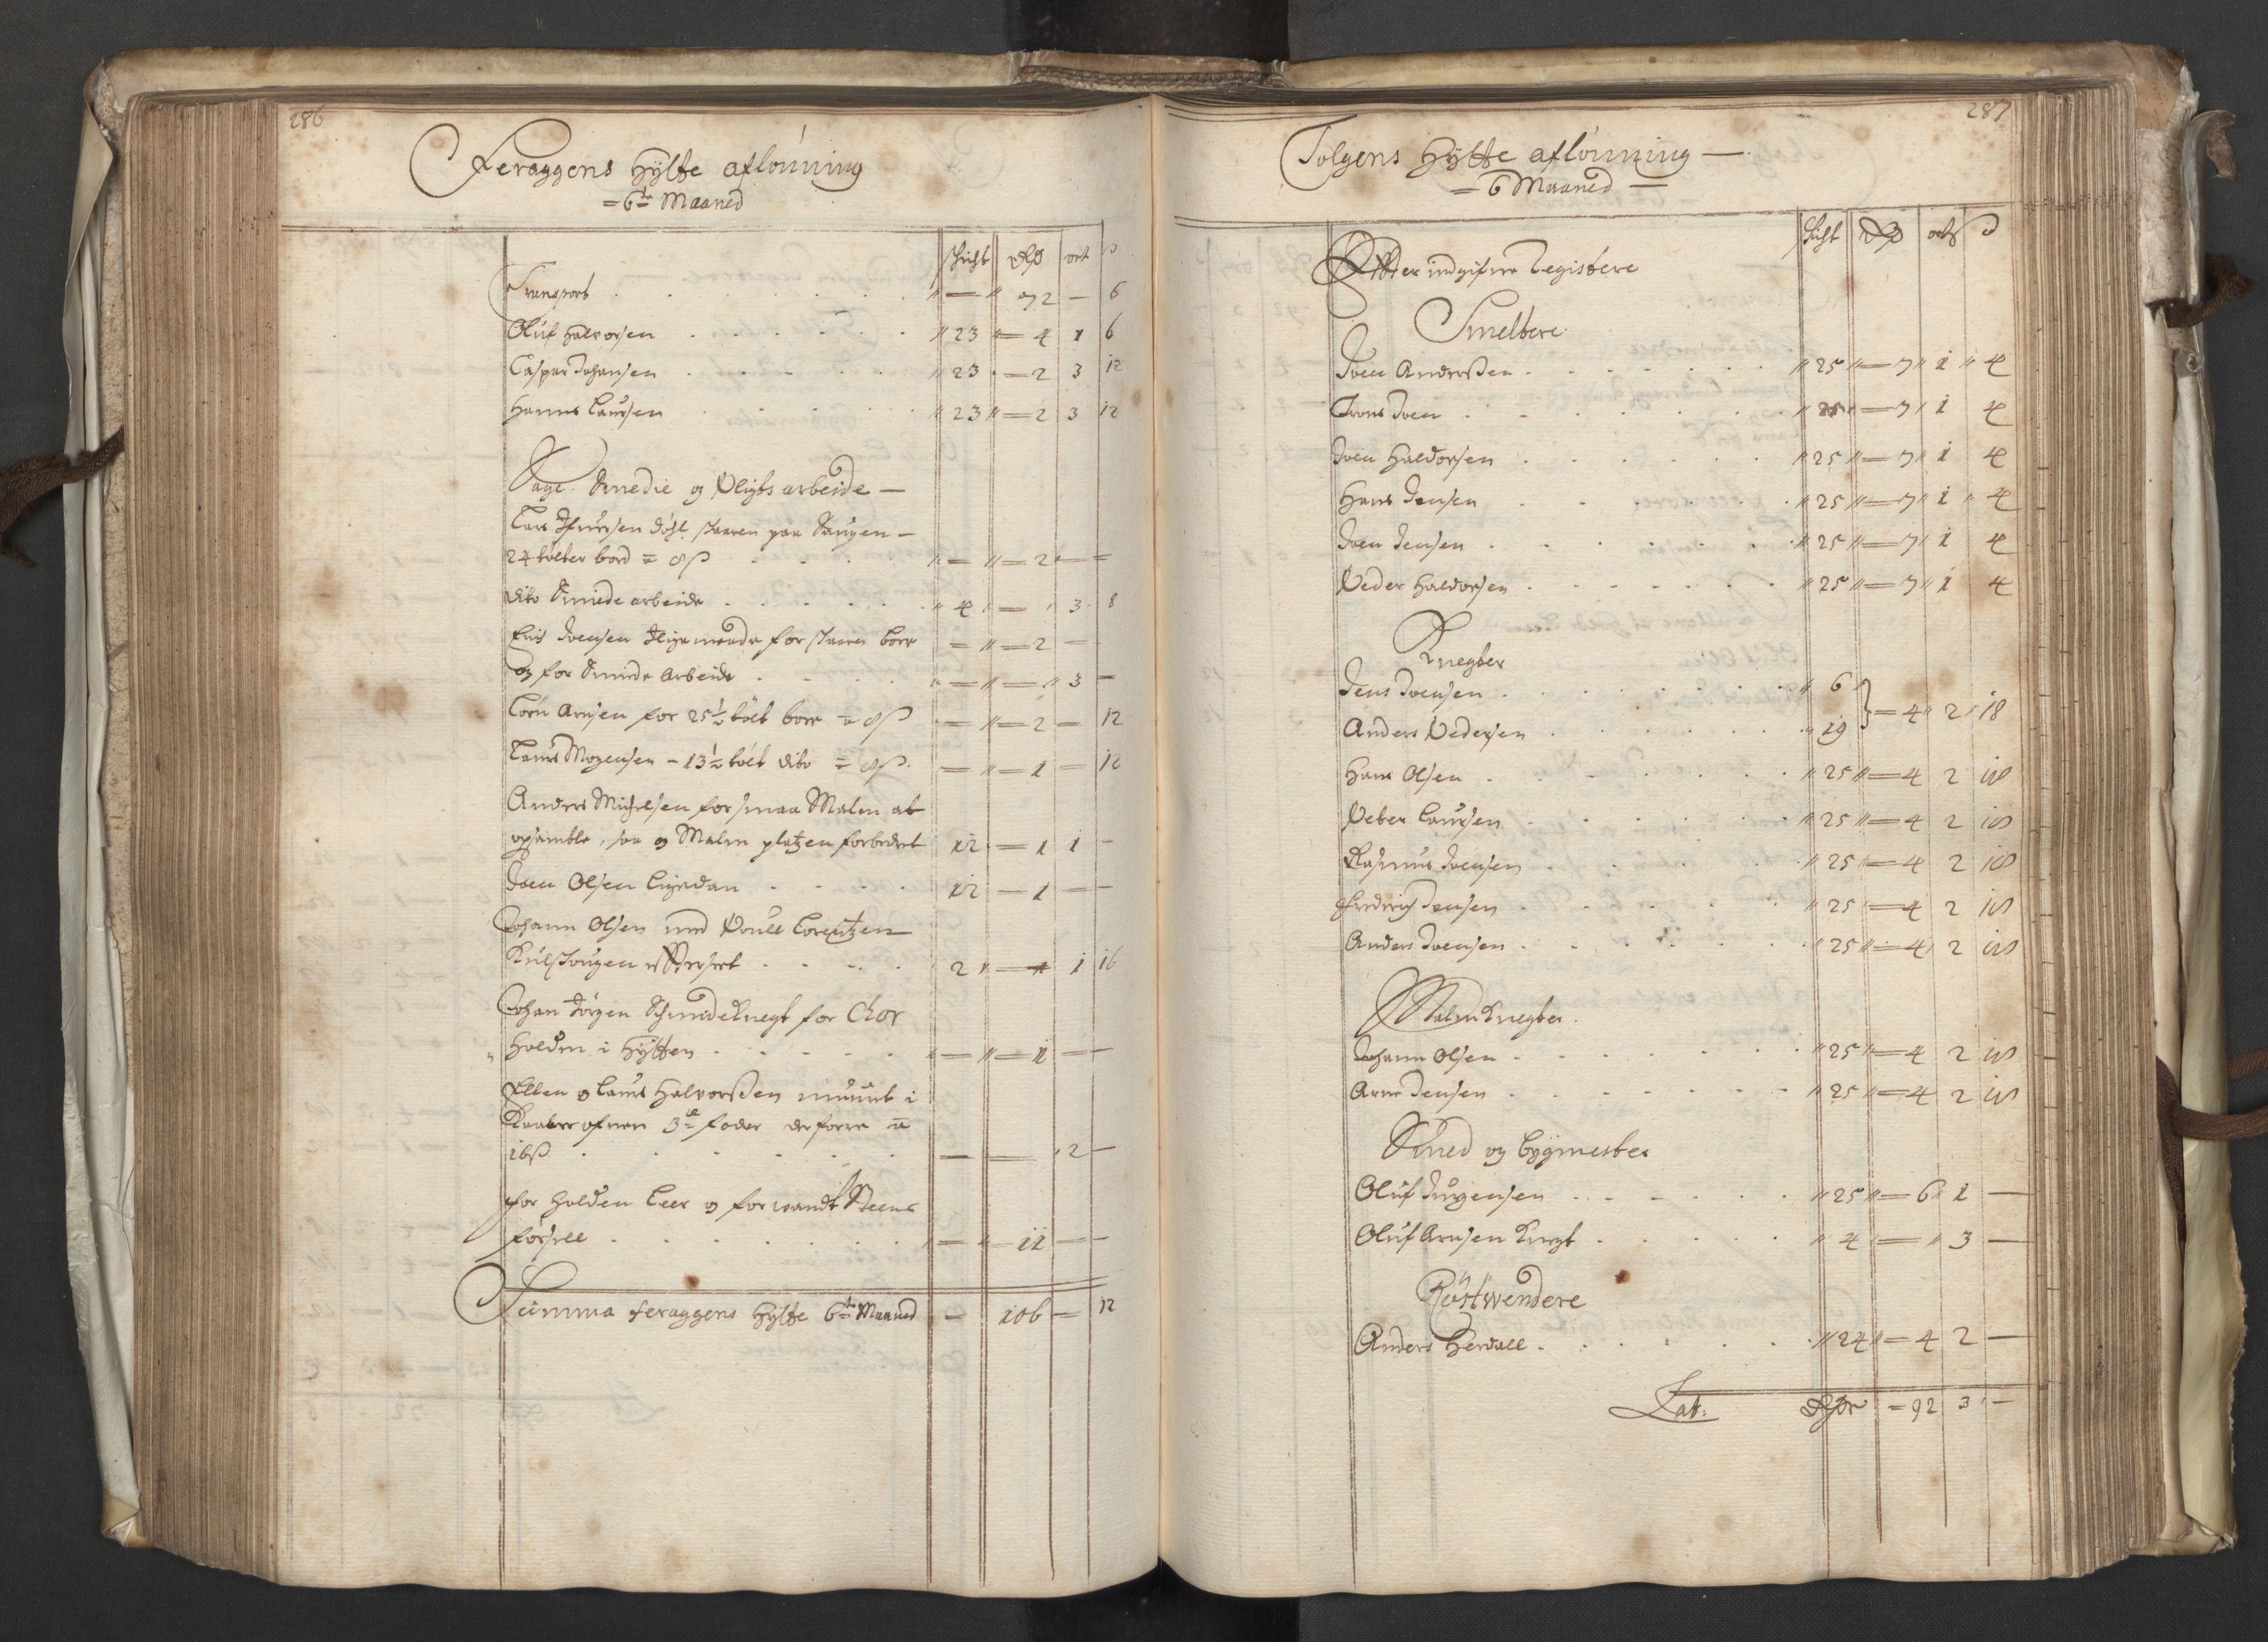 286
Feraggens Hÿtte aflonning
= 6te Maaned
schicht dlr ort ß
Transport . . . . . . . " — " 72 — 6
Oluf Halvorsen . . . . . . " 23 " = 4 1 6
Caspar Johansen . . . . . " 23 · = 2 3 12
Hanns Laursen . . . . . " 23 " = 2 3 12
Sage Smedie og Pligts arbeide —
Lars Skaaren paa Saugen —
24 tolter bord = 8 ß . . . . " = " = 2 — =
dito Smede arbeide . . . . . " 4 " = " 3 8
Erich Ivensen for Skaaren bore = " = 2 —
og for Smide arbeide . . . . " = " = " 3 —
Lorn Arnsen for 25½ tolt bore = 8 ß = " = 2 — 12
Laurs Mogensen — 13½ tolt dito = 8 ß = " = 1 — 12
Anders Michelsen for smaa Malm at
opsamble, saa og Malm platzen forbedret 12 = 1 1 —
Iven Olsen ligedan . . . . 12 = 1 — —
Johann Olsen med Poull Lorentzen
Kulstougen . . . . 2 " = 1 16
Johan Jörgen Schmideknegt for Chor
Holden i Hÿtten . . . . . " = " = 1 — —
Ellen og Laurs Halvorssen i
3de foder derforre a
16 ß . . . . . . . — — 2 —
for Holden Leer og forwandt Steens
försell . . . . . . . " = " 11 — —
Summa feraggens Hÿtte 6te Maaned = 106 — 12
287
Tolgens Hÿtte aflonning —
= 6 Maaned —
schicht dlr ort ß
Effter indgifvne Registere
Smeltere
Iven Anderssen . . . . . . " 25 " = 7 " 1 " 4
Trons Iven . . . . . . " 25 " = 7 " 1 4
Iven Haldorsen . . . . . . " 25 " = 7 " 1 4
Hans Jensen . . . . . . " 25 " = 7 " 1 " 4
Iven Jensen . . . . . . " 25 " = 7 " 1 4
Peder Haldorsen . . . . . . " 25 " = 7 " 1 4
Knegter
Jens Ivensen . . . . . . " 6 " } = 4 " 2 " 18
Anders Pedersen . . . . . . " 19
Hans Olsen . . . . . . " 25 " = 4 2 18
Peter Laursen . . . . . . " 25 " = 4 2 18
Rasmus Ivensen . . . . . . " 25 " = 4 2 18
Frederich Jensen . . . . . . " 25 " = 4 2 18
Anders Ivensen . . . . . . " 25 " = 4 2 18
Malm Knegter
Johann Olsen . . . . . . " 25 " = 4 2 18
Arne Jensen . . . . . . " 25 " = 4 2 18
Smed og Bÿgmester
Oluf Jürgensen . . . . . . " 25 " = 6 " 1 —
Oluf Arnsen Knegt . . . . . " 4 " = " 3 —
Röstwendere
Anders Hervall . . . . . . " 24 " = 4 2 —
Lat: dlr = 92 3 —